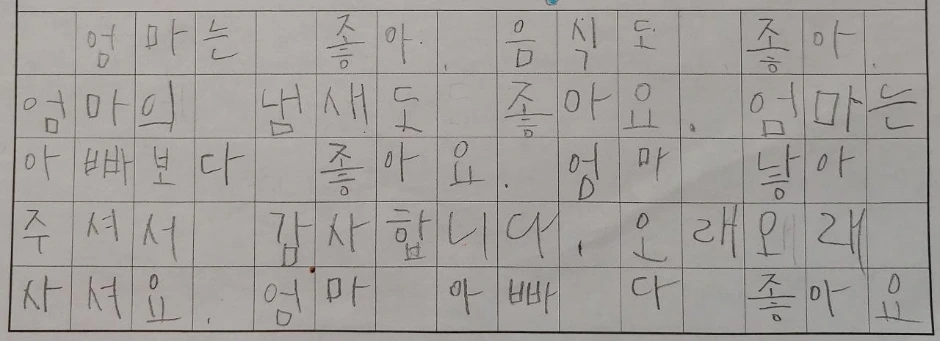 엄마는 좋아. 음식도 좋아.
엄마의 냄새도 좋아요. 엄마는
아빠보다 좋아요. 엄마 낳아
주셔서 감사합니다. 오래오래
사셔요. 엄마 아빠 다 좋아요